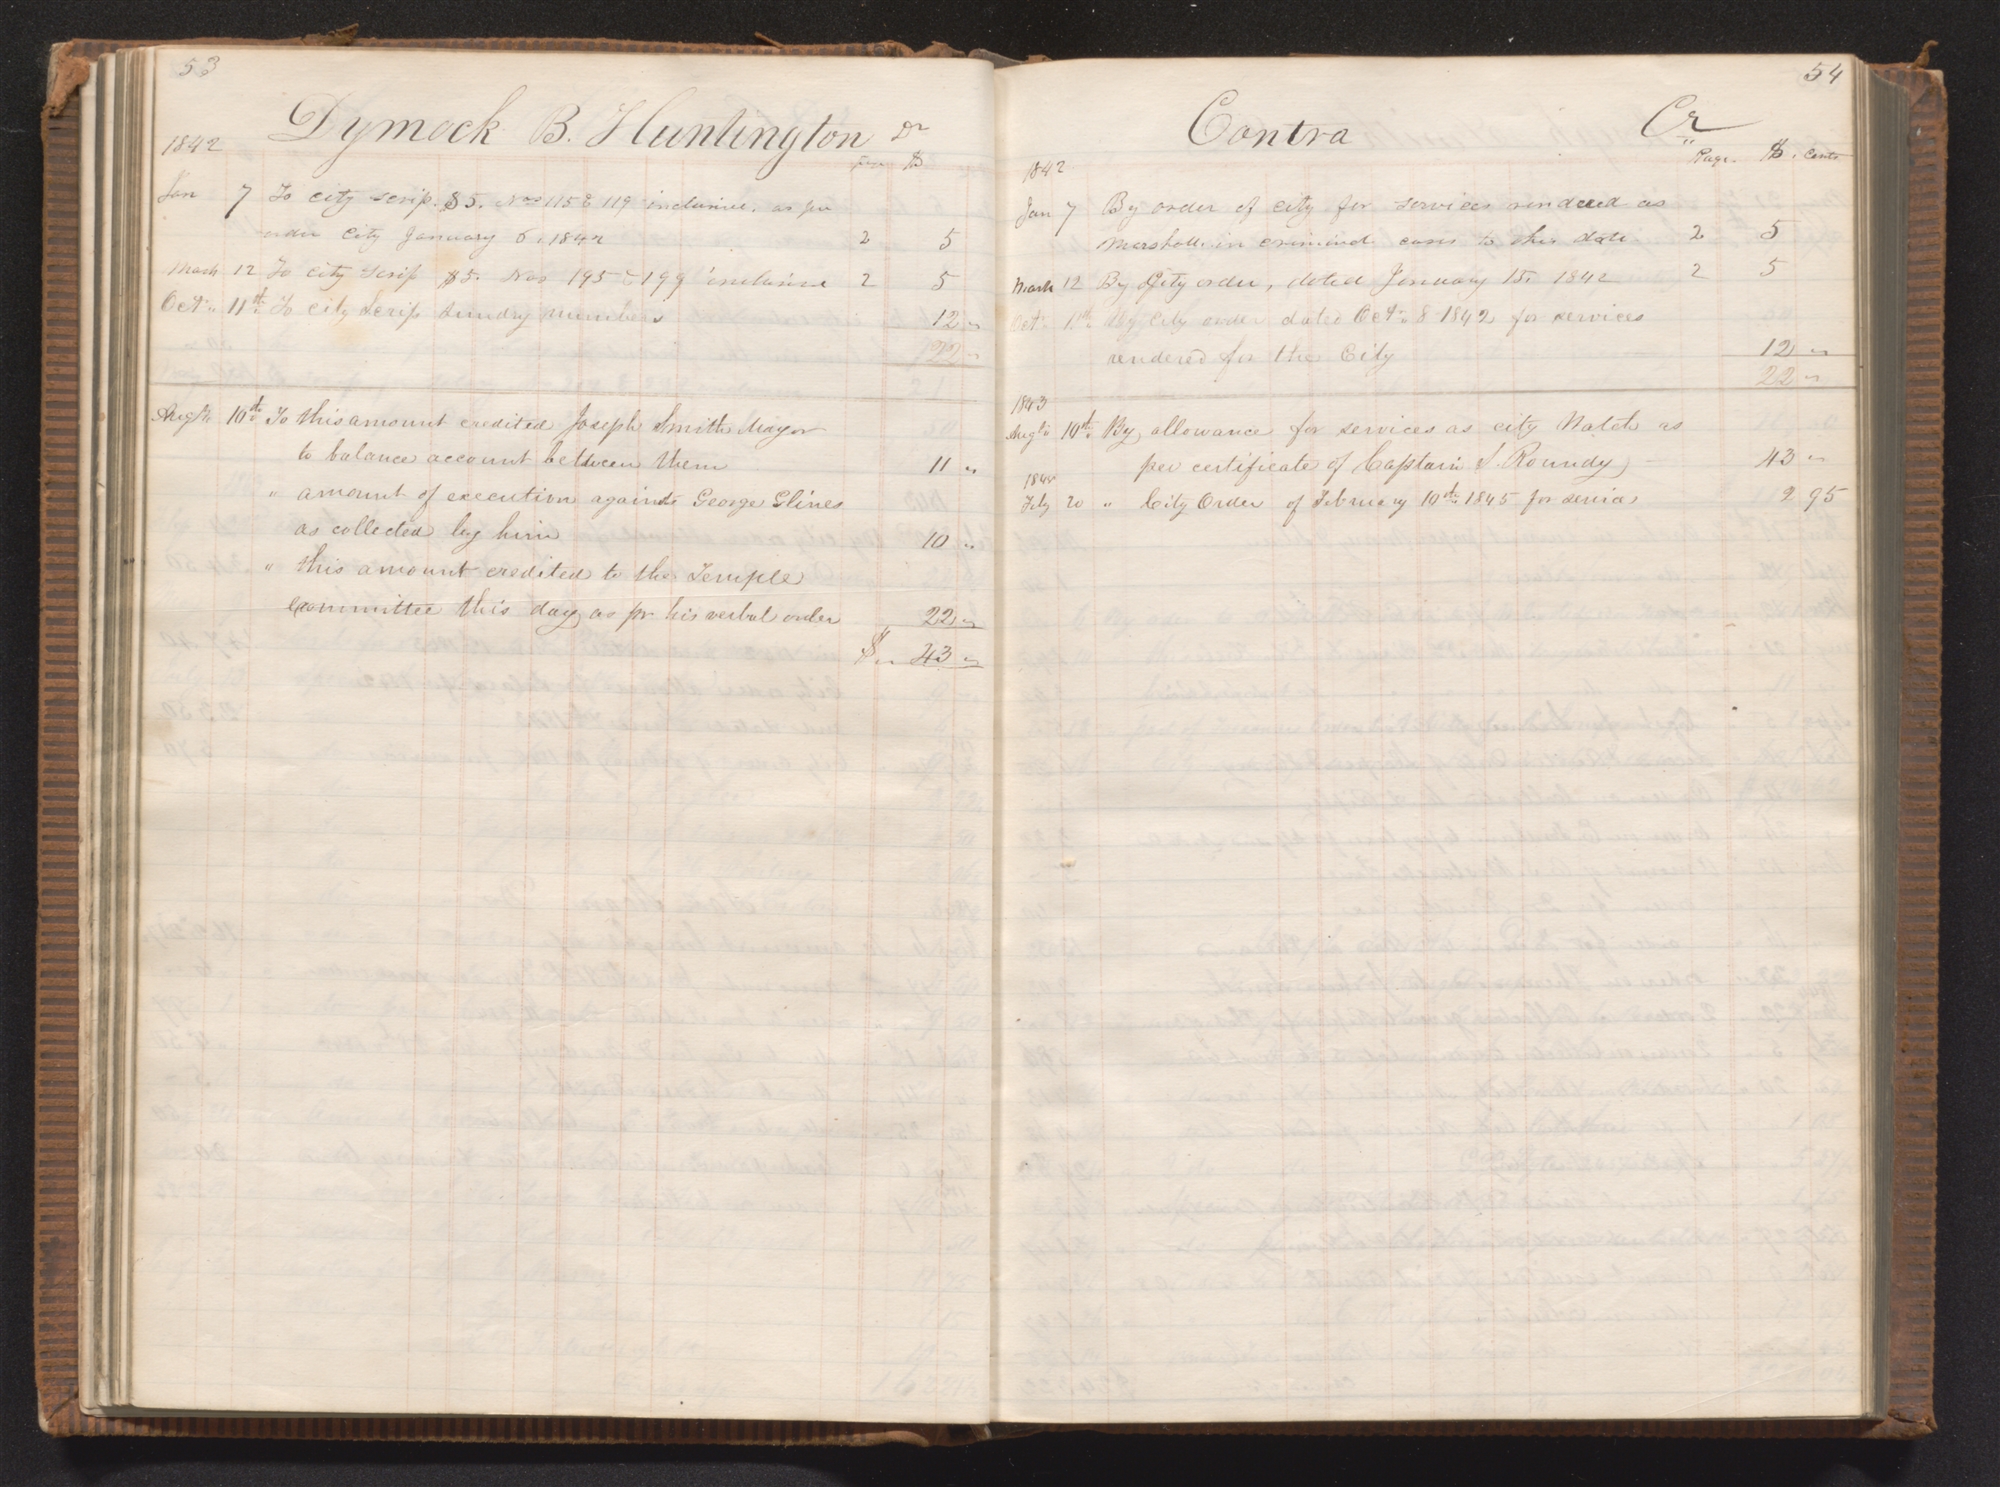 53
Dymock B. Huntington Dr
1842
Page $
Jan 7 To city scrip. $5. Nos 115 & 119 inclusive. as per
order City January 6. 1842 2 5
March 12 To city scrip $5. Nos 195 & 199 inclusive 2 5
Oct. 11th To city scrip sundry numbers 12 "
22 "
Augt 10th To this amount credited Joseph Smith Mayor
to balance account between them 11 "
" amount of execution against George Glines
as collected by him 10 "
" this amount credited to the Temple
committee this day as pr his verbal order 22 "
$ " 43 "
54
Contra Cr
Page. $. Cents
1842
Jan 7 By order of city for services rendered as
Marshall in criminal cases to this date 2 5
March 12 By City order, dated January 15. 1842 2 5
Oct. 11th By City order dated Oct. 8 1842 for services
rendered for the City 12 "
22 "
1843
Augt 10th By allowance for services as city Watch as
per certificate of Captain S. Roundy 43 "
Feby 20 " City Order of February 10th 1845 for services 2 95